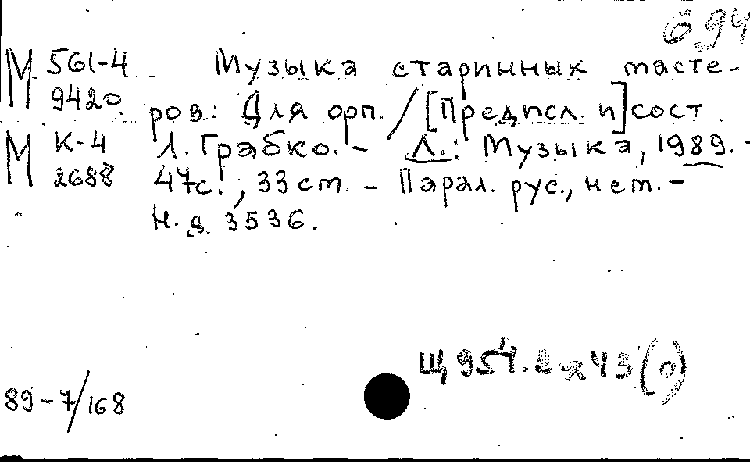 694
М 561-4 Музыка старинных масте-
9420 ров: Для орг. / [Предисл. и] сост.
М К-4 Л. Грабко. - Л.: Музыка, 1989. -
2688 47с., 33 см. - Парал. рус., нем. -
Н. д. 3536.
Щ 954.2 х 43 (0)
89-7/168